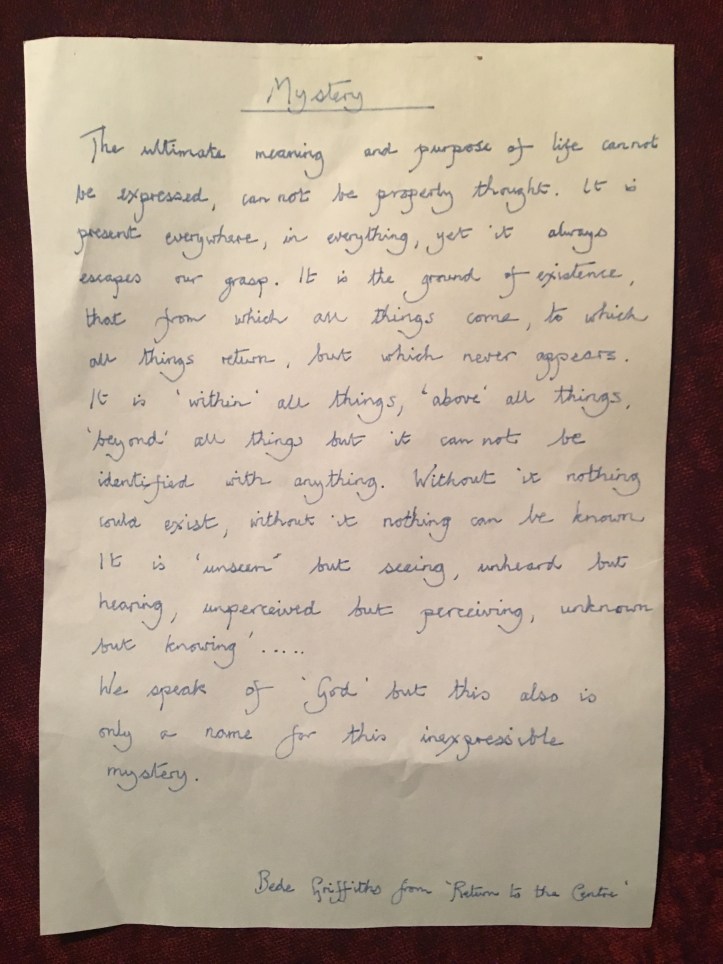 Mystery
The ultimate meaning and purpose of life cannot
be expressed, can not be properly thought. It is
present everywhere, in everything, yet it always
escapes our grasp. It is the ground of existence,
that from which all things come, to which
all things return, but which never appears.
It is 'within' all things, 'above' all things,
'beyond' all things but it can not be
identified with anything. Without it nothing
could exist, without it nothing can be known
It is 'unseen' but seeing, unheard but
hearing, unperceived but perceiving, unknown
but knowing'.....
We speak of 'God' but this also is
only a name for this inexpressible
mystery.
Bede Griffiths from 'Return to the Centre'